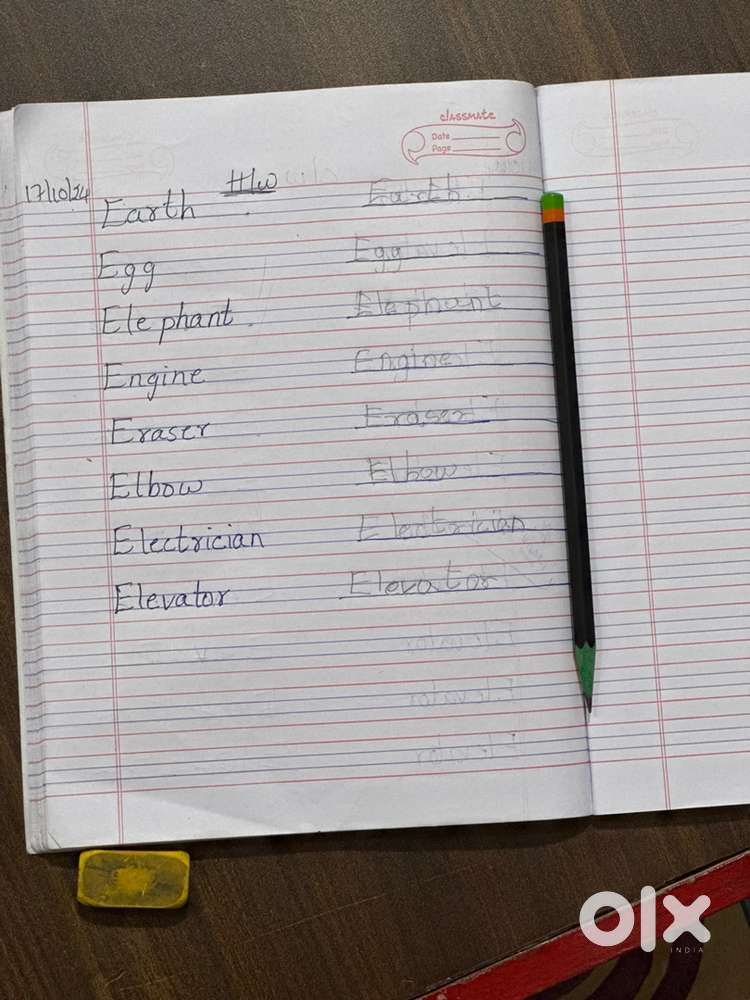 classmate
Date
Page
17/10/24 H/W
Earth Earth
Egg Egg
Elephant. Elephant
Engine Engine
Eraser Eraser
Elbow Elbow
Electrician Electrician
Elevator Elevator
olx
INDIA